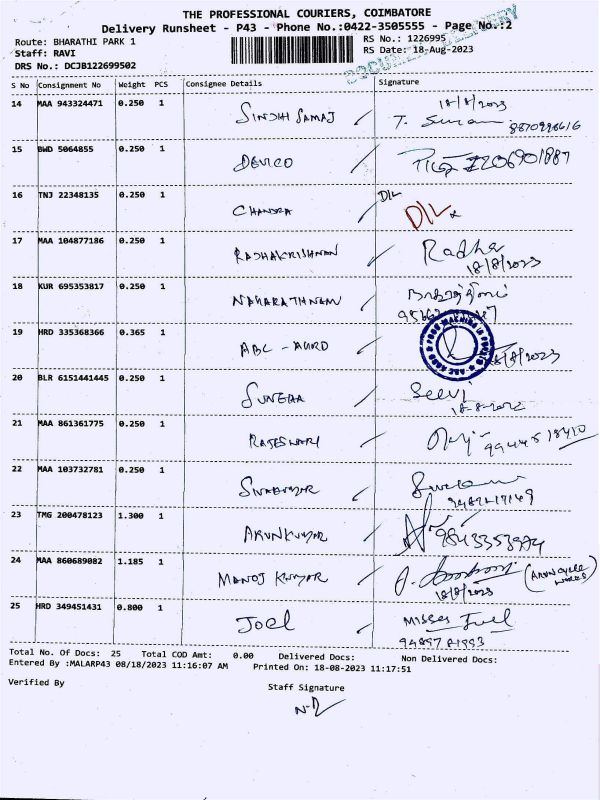 THE PROFESSIONAL COURIERS, COIMBATORE
Delivery Runsheet - P43 - Phone No.:0422-3505555 - Page No.:2
Route: BHARATHI PARK 1
RS No.: 1226995
Staff: RAVI
RS Date: 18-Aug-2023
DRS No.: DCJB122699502
S No Consignment No Weight PCS Consignee Details Signature
14 MAA 943324471 0.250 1 SINDHI SAMAJ 18/8/2023
T.
15 BWD 5064855 0.250 1 DEVICO
16 TNJ 22348135 0.250 1 CHANDRA D/L
D/L
17 MAA 104877186 0.250 1 RADHAKRISHNAN Radha
18/8/2023
18 KUR 695353817 0.250 1 NAVARATHNAM
19 HRD 335368366 0.365 1 ABC - AGRO 18/8/2023
20 BLR 6151441445 0.250 1 SUNEHA Selvi
21 MAA 861361775 0.250 1 RAJESWARI
22 MAA 103732781 0.250 1 SIVAKUMAR
23 TMG 200478123 1.300 1 ARUNKUMAR
9843353974
24 MAA 860689082 1.185 1 MANOJ KUMAR (ARUN CYCLE WORKS)
18/8/2023
25 HRD 349451431 0.800 1 JOEL MISSES Joel
Total No. Of Docs: 25 Total COD Amt: 0.00 Delivered Docs: Non Delivered Docs:
Entered By :MALARP43 08/18/2023 11:16:07 AM Printed On: 18-08-2023 11:17:51
Verified By
Staff Signature